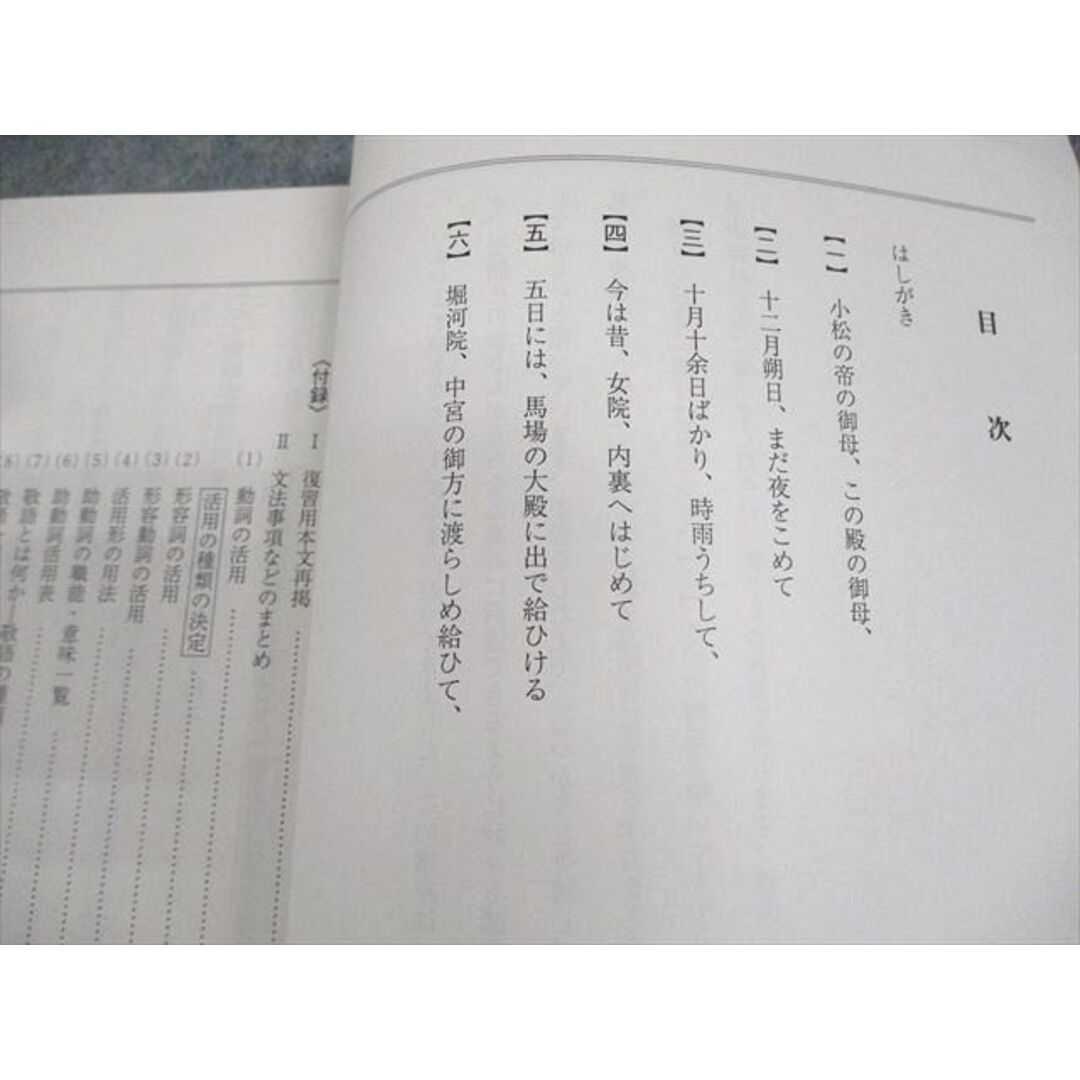 目次
はしがき
【一】 小松の帝の御母、この殿の御母、
【二】 十二月朔日、まだ夜をこめて
【三】 十月十余日ばかり、時雨うちして、
【四】 今は昔、女院、内裏へはじめて
【五】 五日には、馬場の大殿に出で給ひける
【六】 堀河院、中宮の御方に渡らしめ給ひて、
〈付録〉 Ⅰ 復習用本文再掲
Ⅱ 文法事項などのまとめ
(1) 動詞の活用
活用の種類の決定
(2) 形容詞の活用
(3) 形容動詞の活用
(4) 活用形の用法
(5) 助動詞の職能・意味一覧
(6) 助動詞活用表
(7) 敬語とは何か